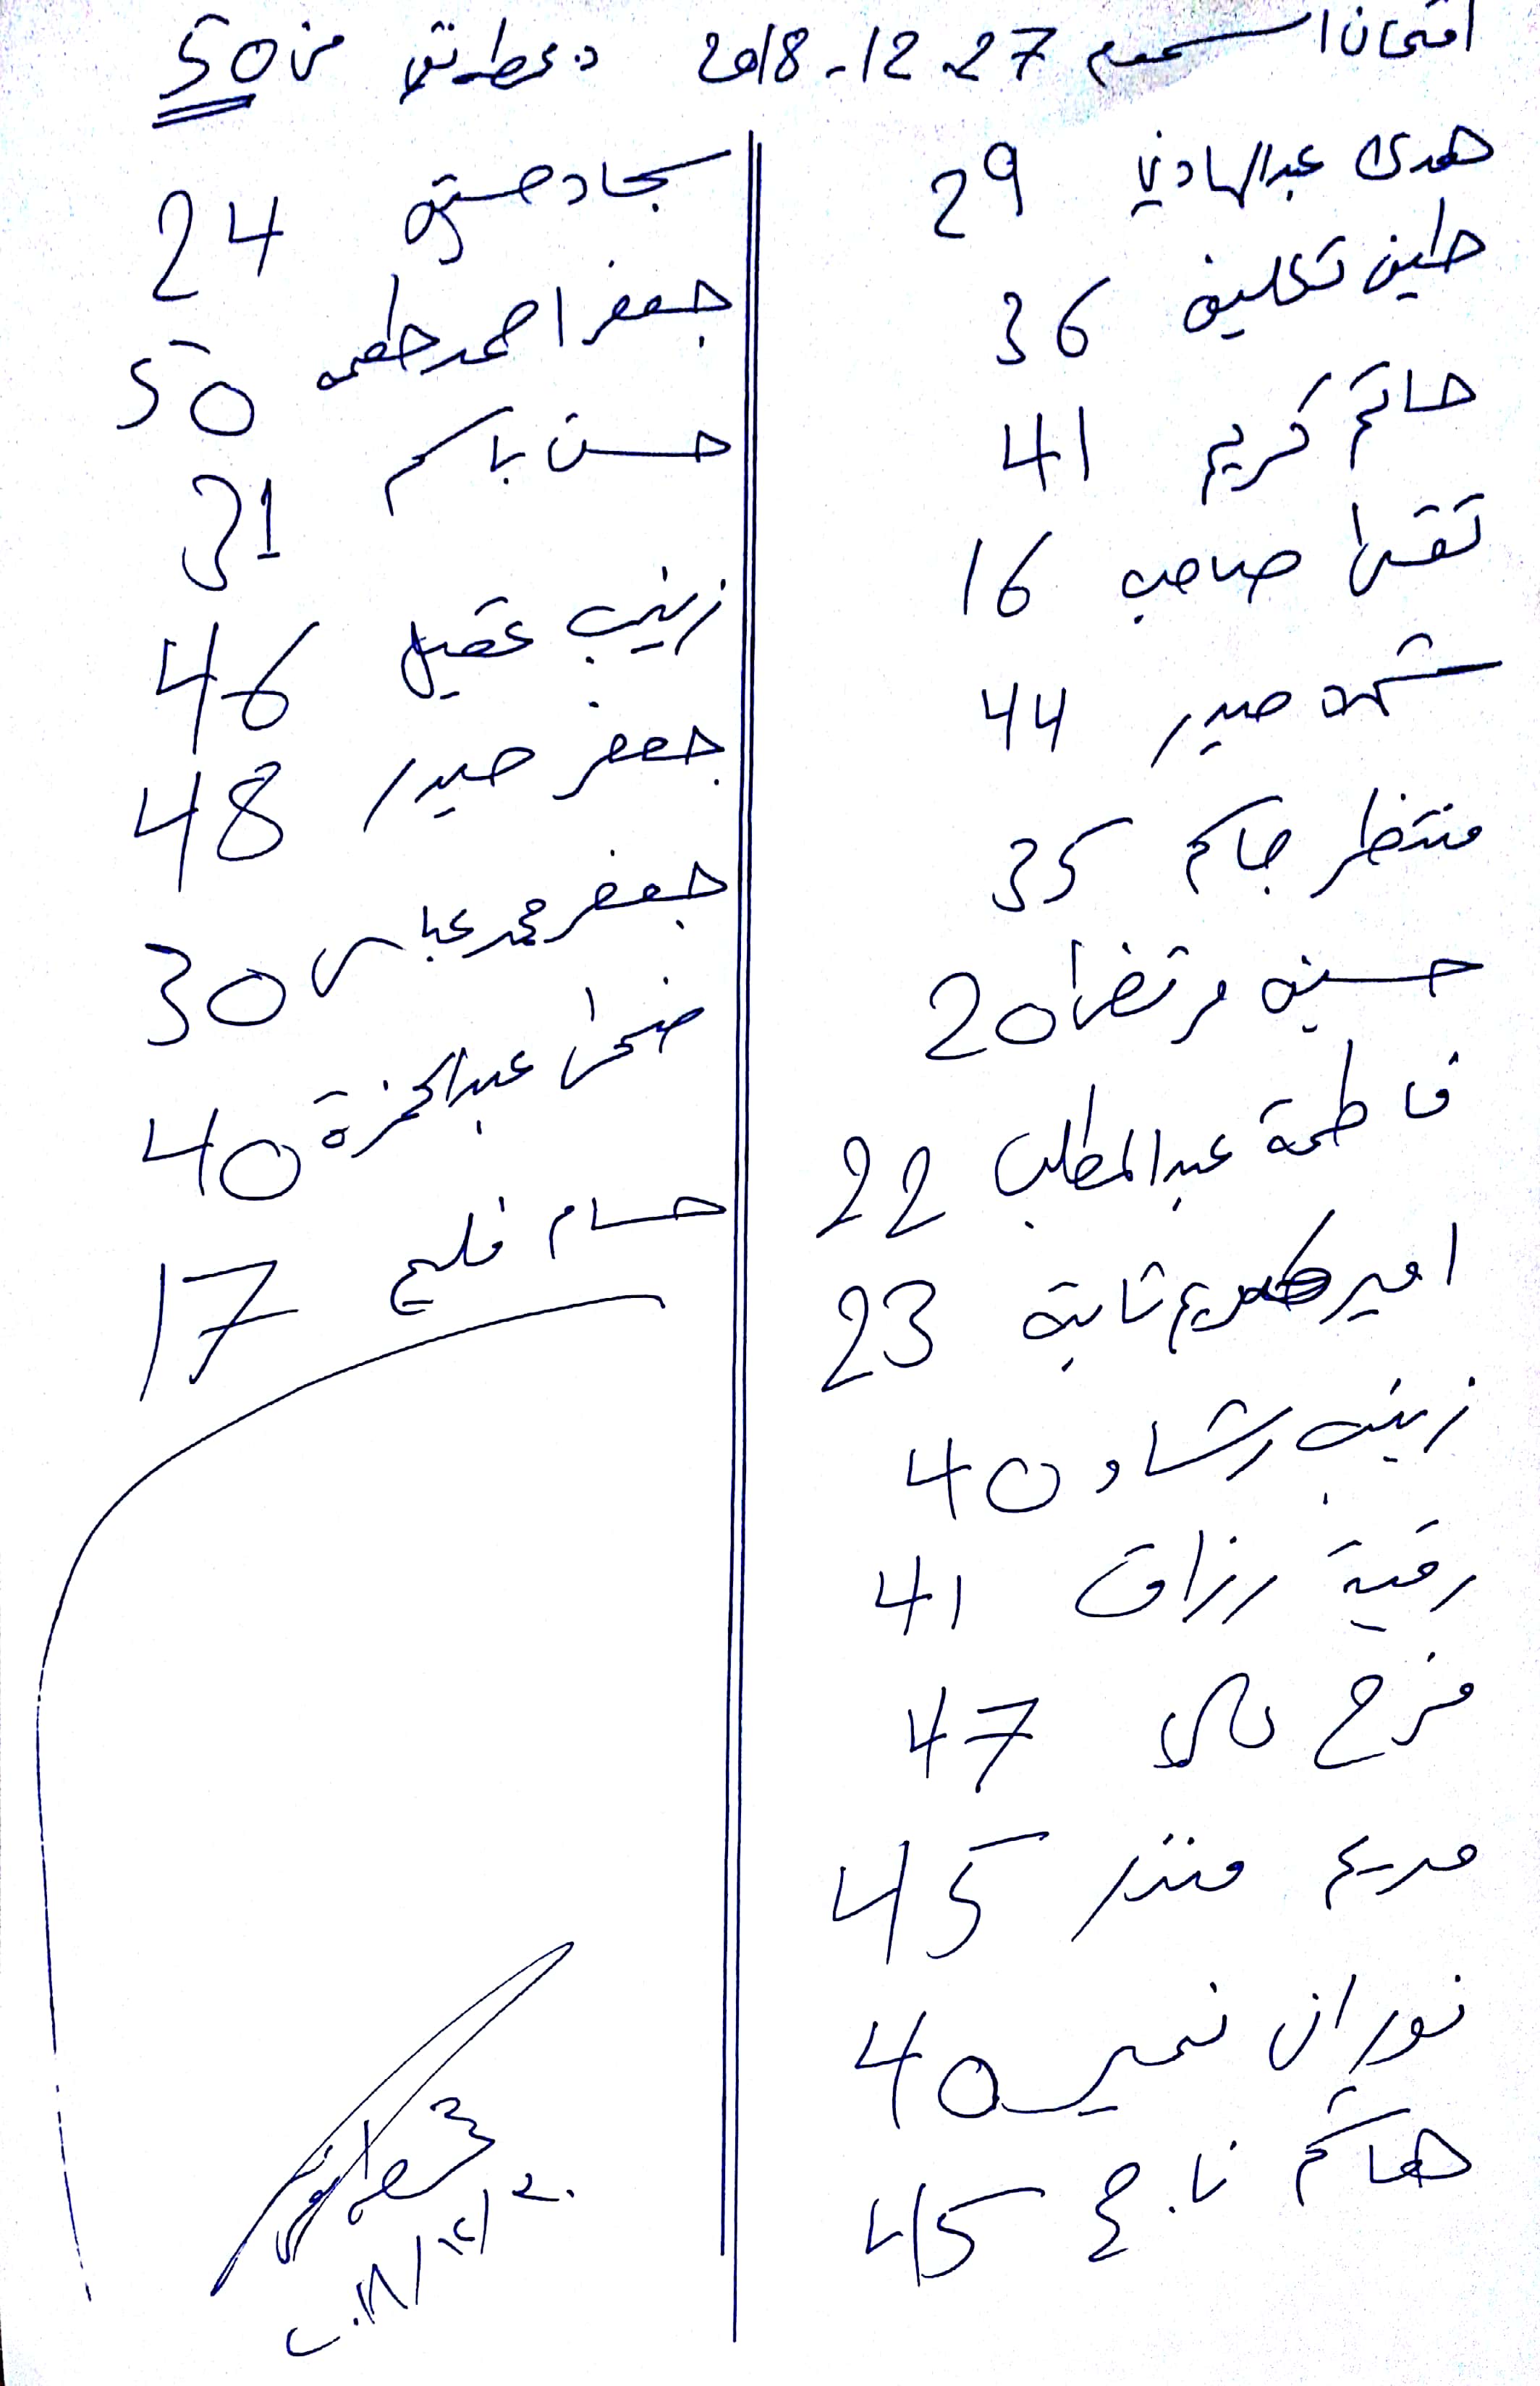 امتحان السموم 27-12-2018 د. عطا من 50
هدى عبدالهادي 29
تكليف 36
حاتم كريم 41
تقى صاحب 16
شهد حيدر 44
منتظر جاسم 35
حسين مرتضى 20
فاطمة عبدالمطلب 22
امير كريم ثابت 23
زينب رشاد 40
رقية رزاق 41
فرح 47
مريم منذر 45
نوران نمير 40
هاشم ناجح 45
سجاد حسين 24
جعفر احمد طعمه 50
حسن باسم 31
زينب عقيل 46
جعفر حيدر 48
جعفر محمد عباس 30
ضحى عبدالحمزة 40
حسام فليح 17